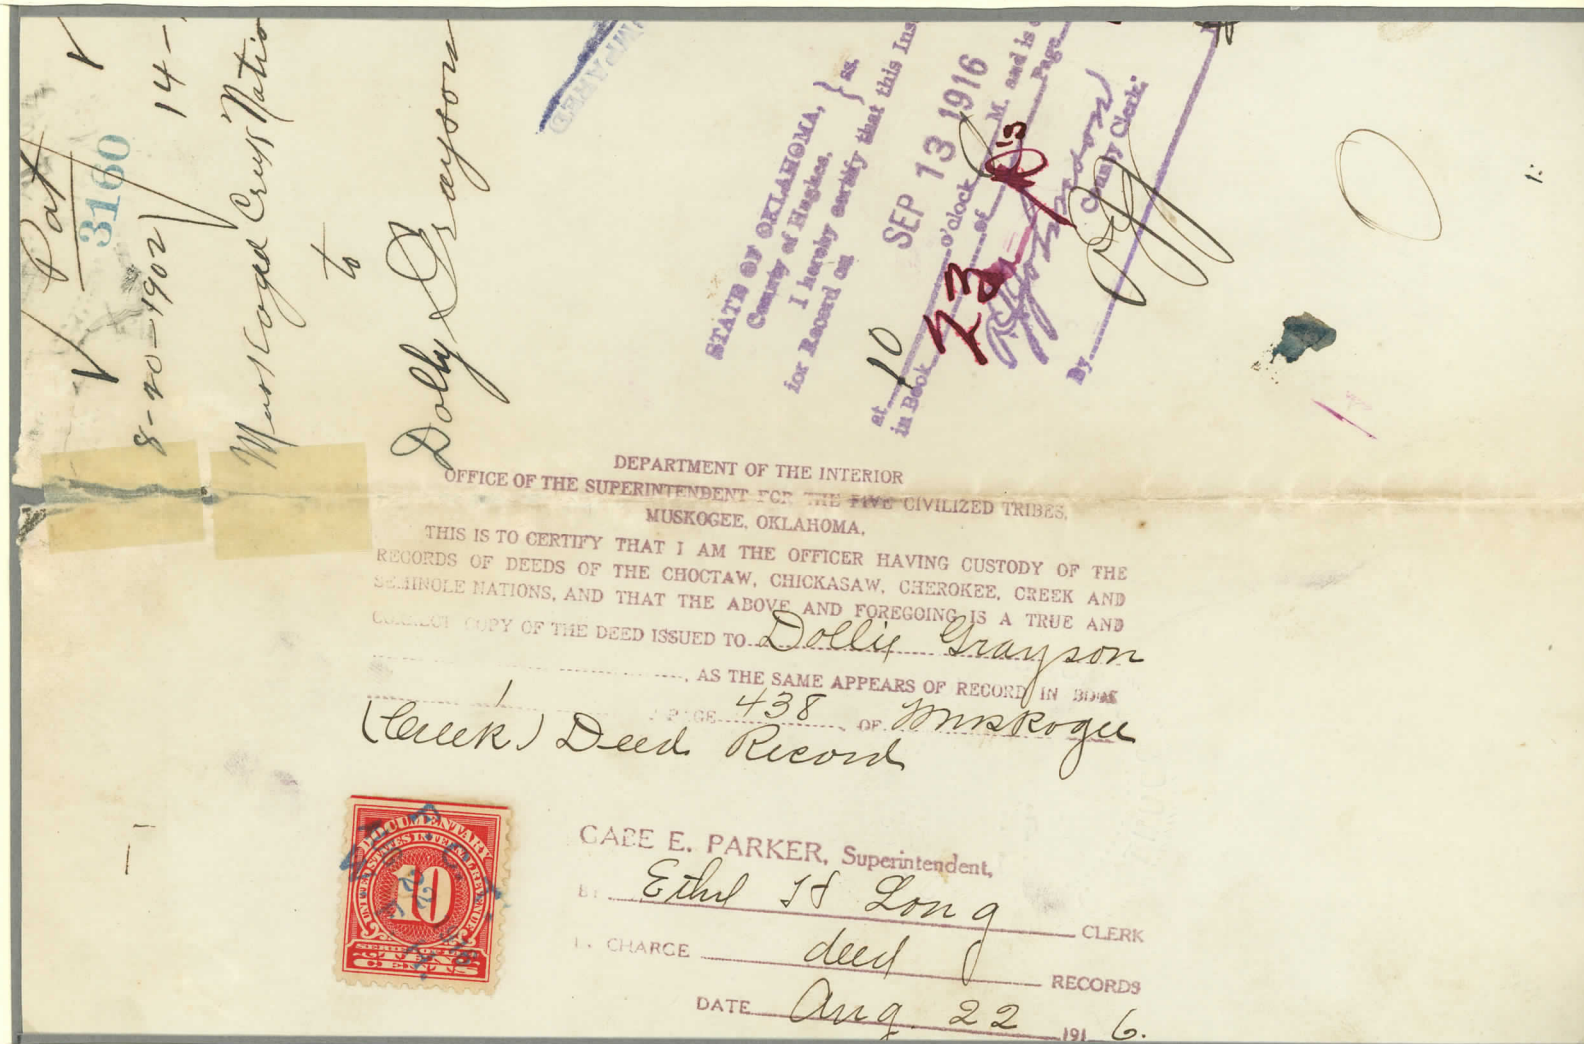 Pat
3160
8-20-1902 14-
Muskogee Creek Natio
to
Dolly Grayson
STATE OF OKLAHOMA, } ss.
County of Hughes,
I hereby certify that this Ins
for Record on
SEP 13 1916
at 10 o'clock M. and is
in Book 23 of Page
County Clerk.
By
DEPARTMENT OF THE INTERIOR
OFFICE OF THE SUPERINTENDENT FOR THE FIVE CIVILIZED TRIBES,
MUSKOGEE, OKLAHOMA.
THIS IS TO CERTIFY THAT I AM THE OFFICER HAVING CUSTODY OF THE
RECORDS OF DEEDS OF THE CHOCTAW, CHICKASAW, CHEROKEE, CREEK AND
SEMINOLE NATIONS, AND THAT THE ABOVE AND FOREGOING IS A TRUE AND
CORRECT COPY OF THE DEED ISSUED TO Dollie Grayson
, AS THE SAME APPEARS OF RECORD IN BOOK
1 PAGE 438, OF Muskogee
(Creek) Deed Record
GABE E. PARKER, Superintendent,
BY Ethel H Long CLERK
IN CHARGE deed RECORDS
DATE Aug. 22 1916.
DOCUMENTARY
UNITED STATES INTERNAL REVENUE
10